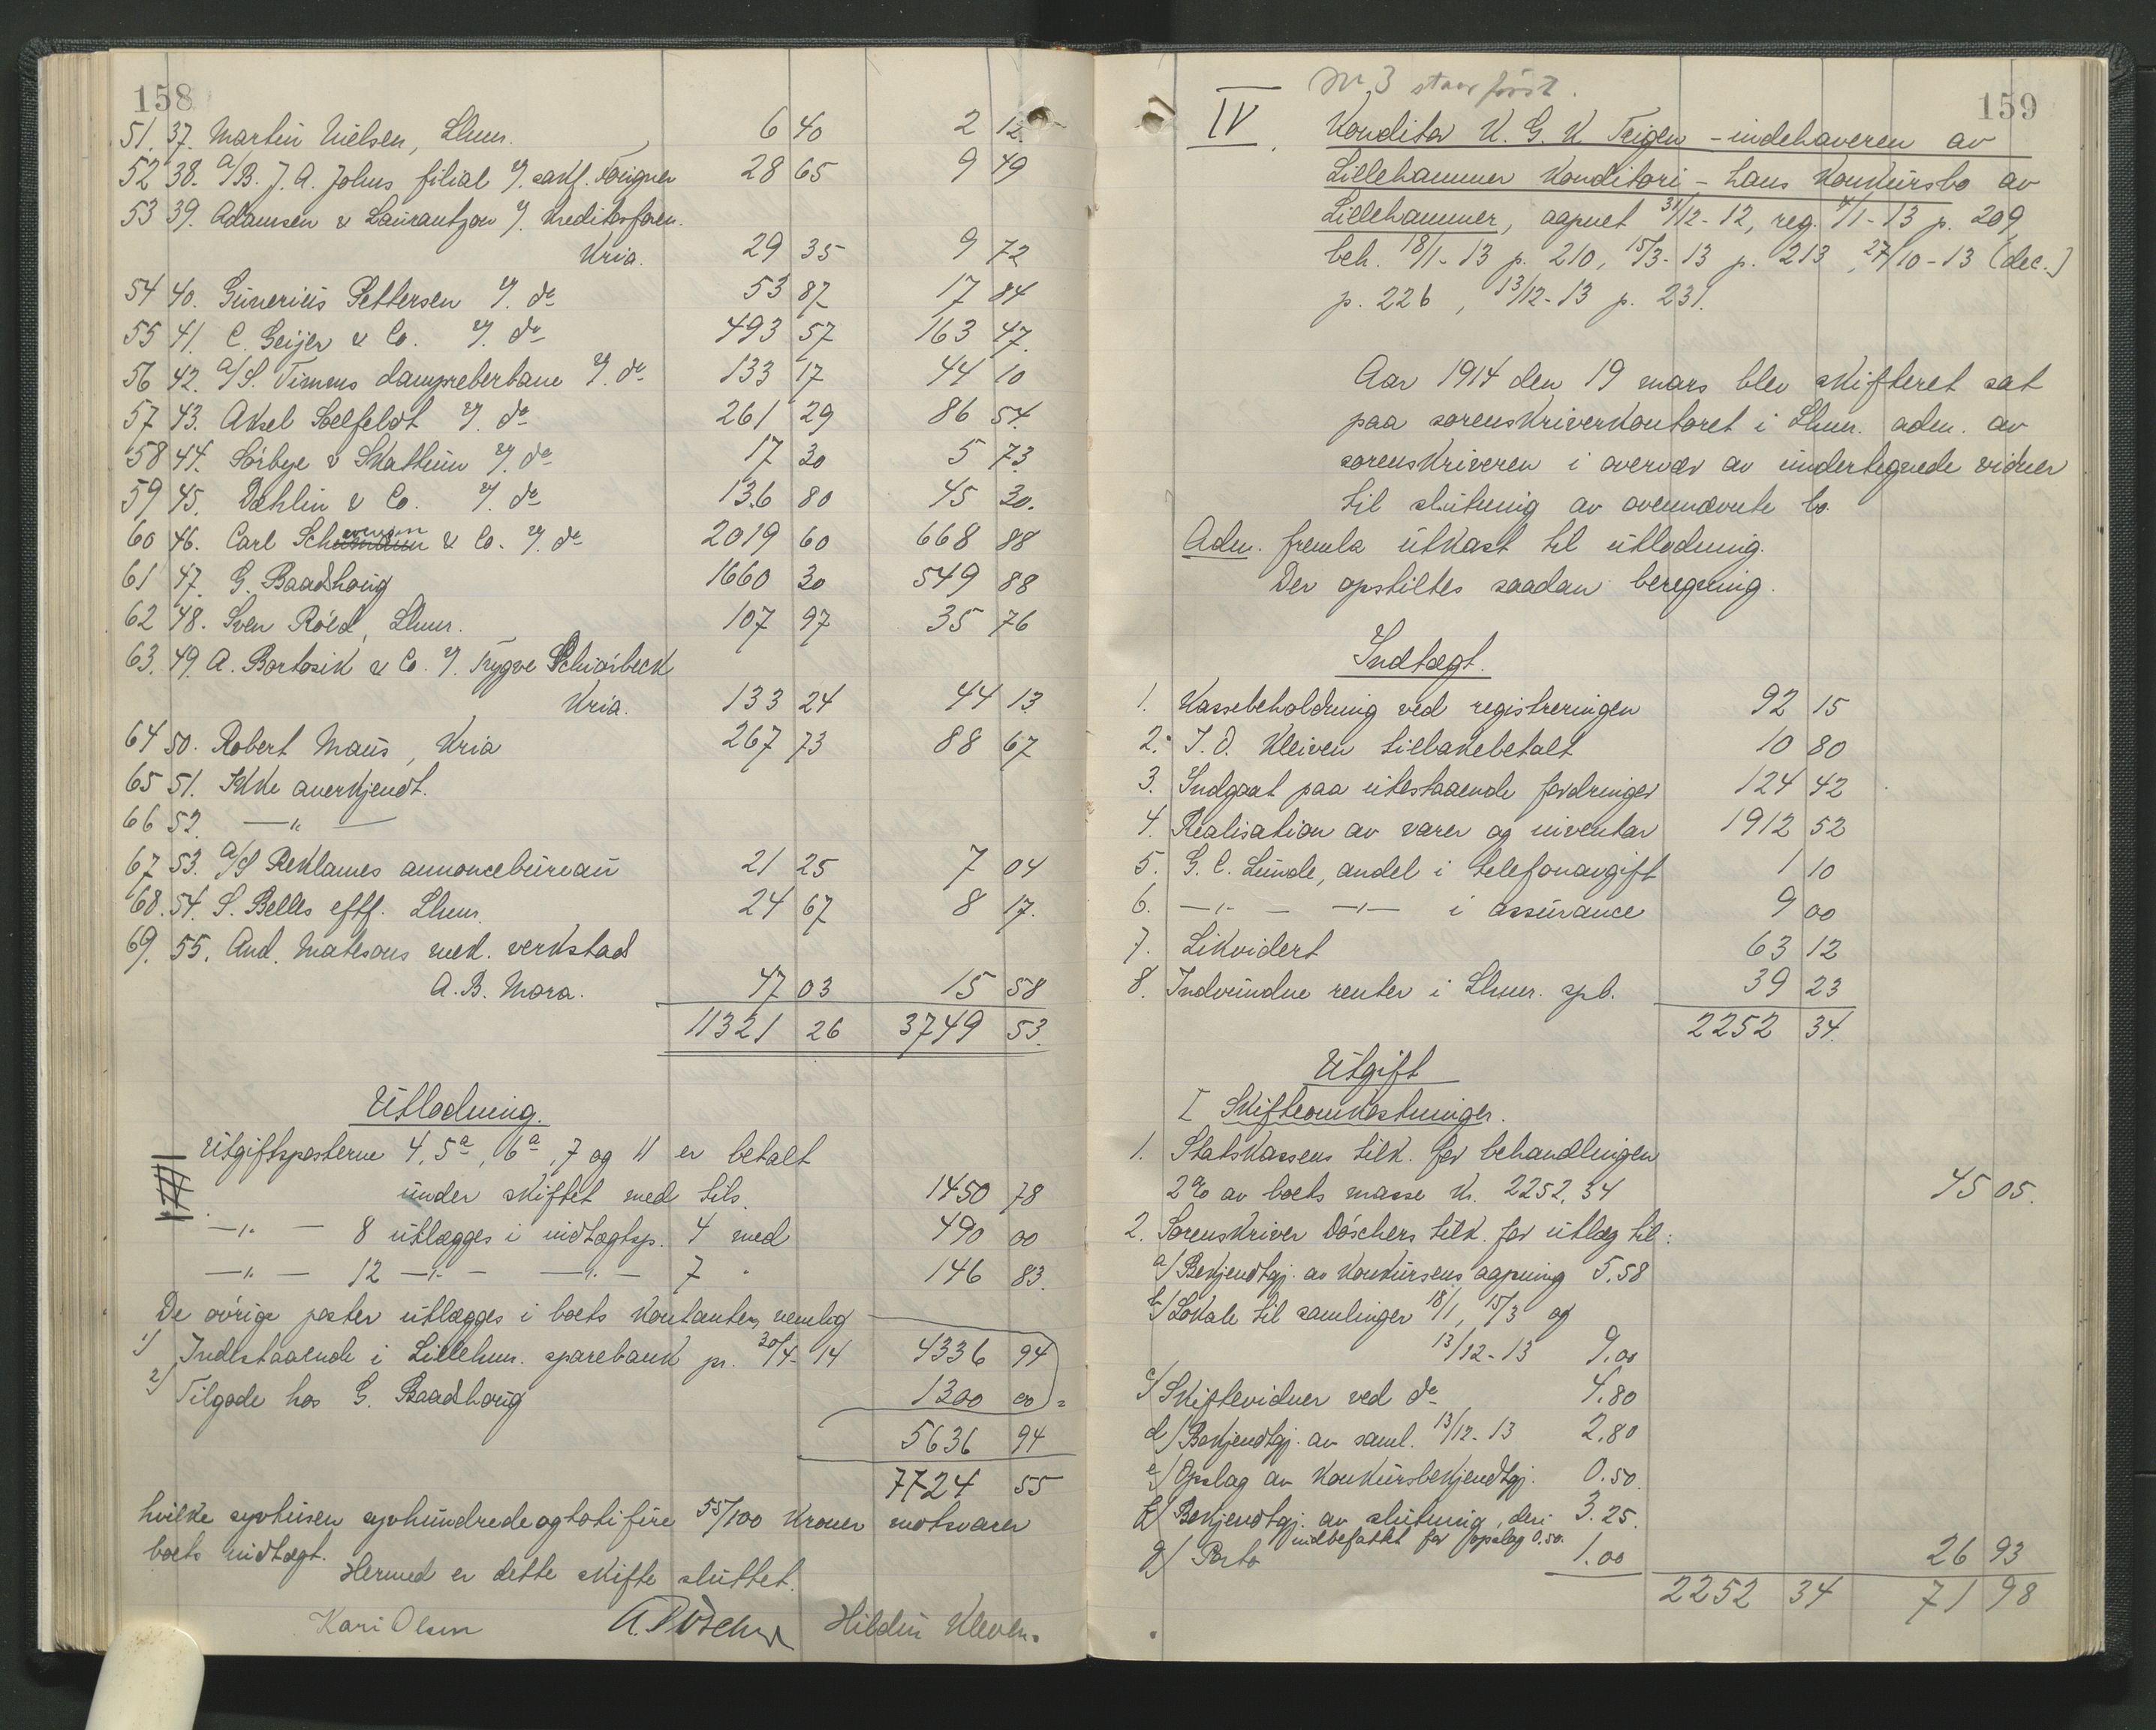 158
51. 37. Martin Nielsen, Lhmr. 6 40 2 12
52 38. A/B. J. A. Johns filial v/. sakf. Tørigner 28 65 9 49
53 39. Adamsen & Laurantzon v/. Kreditorforen.
Kria. 29 35 9 72
54 40. Gunerius Pettersen v/. do 53 87 17 84
55 41. C. Geijer & Co. v/. do 493 57 163 47.
56 42. a/S. Timms dampreberbane v/. do 133 17 44 10
57 43. Aksel Selfeldt v/. do 261 29 86 54.
58 44. Sørbye & Skattum v/. do 17 30 5 73.
59 45. Dahlin & Co. v/. do 136 80 45 30.
60 46. Carl & Co. v/. do 2019 60 668 88
61 47. G. Baadshoug 1660 30 549 88
62 48. Sven Röed, Lhmr. 107 97 35 76
63. 49. A. Bortosik & Co. v/. Trygve Schiørbeck
Kria. 133 24 44 13.
64 50. Robert Maus, Kria 267 73 88 67
65 51. Ikke anerkjendt.
66 52. — " —
67 53. a/S Reklames annoncebureau 21 25 7 04
68. 54. S. Belles eftf. Lhmr. 24 67 8 17.
69. 55. And. Matesons mek. verkstad
A. B. Mora. 47 03 15 58
11321 26 3749 53.
Utlodning.
Utgiftsposterne 4, 5a, 6a, 7 og 11 er betalt
under skiftet med tils. 1450 78
—"— 8 utlægges i indtægtsp. 4 med 490 00
—"— 12 —"— —"— 7 " 146 83.
De øvrige poster utlægges i boets kontanter, nemlig
1) Indestaaende i Lillehmr. sparebank pr. 30/4-14 4336 94
2) Tilgode hos G. Baadshoug 1300 00
5636 94
7724 55
hvilke syvtusen syvhundredeogtoti fire 55/100 kroner motsvarer
boets indtægt.
Hermed er dette skifte sluttet.
Kari Olsen A. Döscher Hildur Kleven.
159
Nr 3 staar først.
IV. Konditor K. G. K Teigen – indehaveren av
Lillehammer Konditori – hans konkursbo av
Lillehammer, aapnet 31/12-12, reg. 4/1-13 p. 209,
beh. 18/1-13 p. 210, 15/3-13 p. 213, 27/10-13 (dec.)
p. 226, 13/12-13 p. 231.
Aar 1914 den 19 mars blev skifteret sat
paa sorenskriverkontoret i Lhmr. adm. av
sorenskriveren i overvær av undertegnede vidner
til slutning av ovennævnte bo.
Adm. fremla utkast til utlodning.
Der opstiltes saadan beregning.
Indtægt.
1. Kassebeholdning ved registreringen 92 15
2. I. O. Kleiven tilbakebetalt 10 80
3. Indgaat paa utestaaende fordringer 124 42
4. Realisation av varer og inventar 1912 52
5. G. C. Lunde, andel i telefonavgift 1 10
6. —"— —"— i assurance 9 00
7. Likvidert 63 12
8. Indvundne renter i Lhmr. spb. 39 23
2252 34.
Utgift
I Skifteomkostninger.
1. Statskassens tilk. for behandlingen
2% av boets masse kr. 2252,34 45 05.
2. Sorenskriver Döschers tilk. for utlæg til:
a) Bekjendtgj. av konkursens aapning 5.58
b) Lokale til samlinger 18/1, 15/3 og
13/12-13 9.00
c) Skiftevidner ved do 4.80
d) Bekjendtgj. av saml. 13/12-13 2.80
e) Opslag av konkursbekjendtgj. 0.50.
f) Bekjendtgj. av slutning, deri 3.25.
indbefattet for opslag 0.50.
g) Porto 1.00 26 93
2252 34 71 98